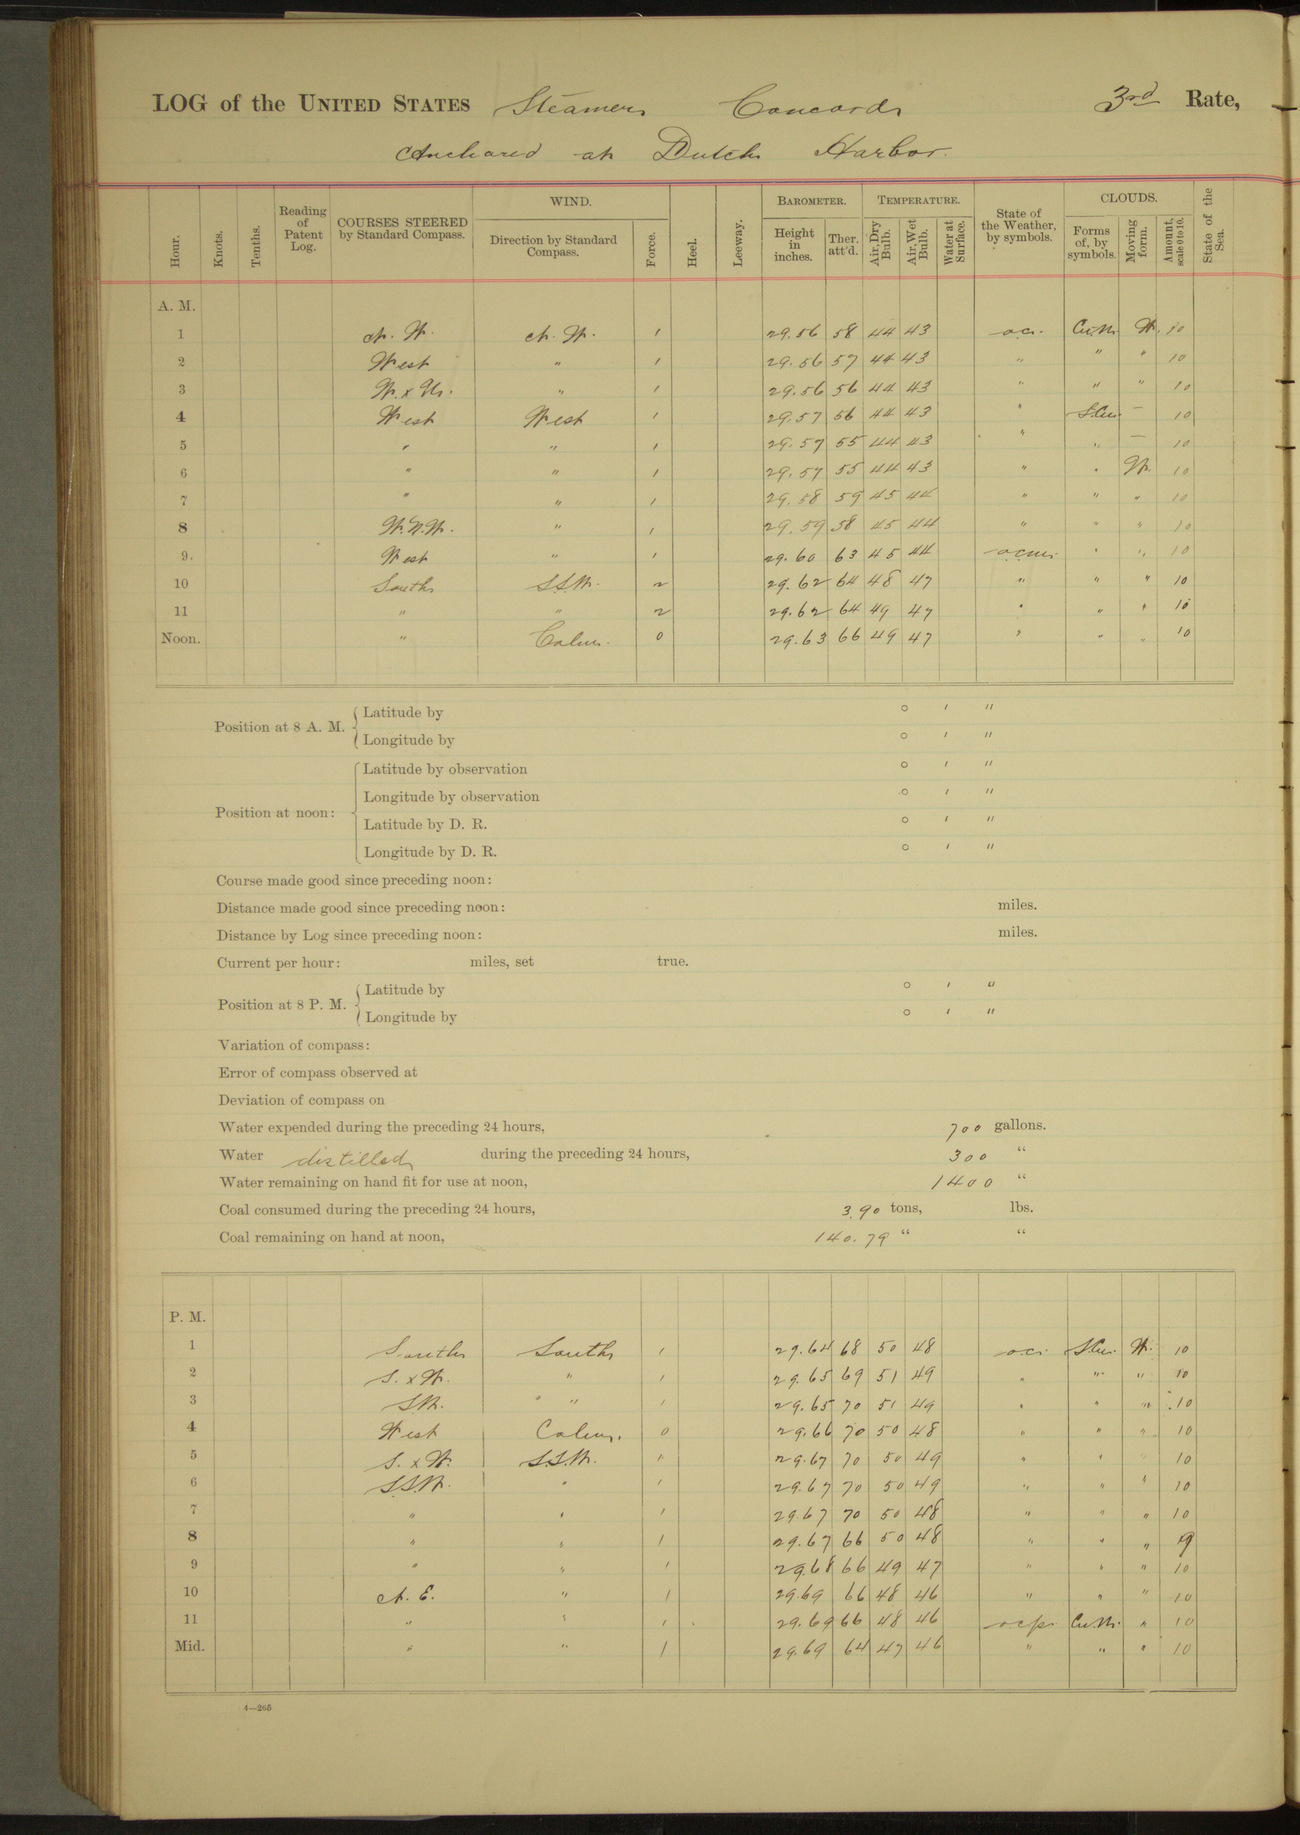 LOG of the UNITED STATES Steamer Concord 3rd Rate,
Anchored at Dutch Harbor.
Hour. Knots. Tenths. Reading of Patent Log. COURSES STEERED by Standard Compass. WIND. Direction by Standard Compass. Force. Heel. Leeway. BAROMETER. Height in inches. Ther. att'd. TEMPERATURE. Air, Dry Bulb. Air, Wet Bulb. Water at Surface. State of the Weather, by symbols. CLOUDS. Forms of, by symbols. Moving form. Amount, scale 0 to 10. State of the Sea.
A. M.
1 N. W. N. W. 1 29.56 58 44 43 oc. Cu.N. W. 10
2 West " 1 29.56 57 44 43 " " " 10
3 W. x N. " 1 29.56 56 44 43 " " " 10
4 West West 1 29.57 56 44 43 " S.Cu. — 10
5 " " 1 29.57 55 44 43 " " — 10
6 " " 1 29.57 55 44 43 " " W. 10
7 " " 1 29.58 59 45 44 " " " 10
8 W.N.W. " 1 29.59 58 45 44 " " " 10
9. West " 1 29.60 63 45 44 ocm. " " 10
10 South S.S.W. 2 29.62 64 48 47 " " " 10
11 " " 2 29.62 64 49 47 " " " 10
Noon. " Calm. 0 29.63 66 49 47 " " " 10
Position at 8 A. M. Latitude by ° ′ ″
Longitude by ° ′ ″
Position at noon: Latitude by observation ° ′ ″
Longitude by observation ° ′ ″
Latitude by D. R. ° ′ ″
Longitude by D. R. ° ′ ″
Course made good since preceding noon:
Distance made good since preceding noon: miles.
Distance by Log since preceding noon: miles.
Current per hour: miles, set true.
Position at 8 P. M. Latitude by ° ′ ″
Longitude by ° ′ ″
Variation of compass:
Error of compass observed at
Deviation of compass on
Water expended during the preceding 24 hours, 700 gallons.
Water distilled during the preceding 24 hours, 300 "
Water remaining on hand fit for use at noon, 1400 "
Coal consumed during the preceding 24 hours, 3.90 tons, lbs.
Coal remaining on hand at noon, 140.79 " "
P. M.
1 South South 1 29.64 68 50 48 oc. S.Cu. W. 10
2 S. x W. " 1 29.65 69 51 49 " " " 10
3 S.W. " " 1 29.65 70 51 49 " " " 10
4 West Calm. 0 29.66 70 50 48 " " " 10
5 S. x W. S.S.W. 1 29.67 70 50 49 " " " 10
6 S.S.W. " 1 29.67 70 50 49 " " " 10
7 " " 1 29.67 70 50 48 " " " 10
8 " " 1 29.67 66 50 48 " " " 9
9 " " 1 29.68 66 49 47 " " " 10
10 N. E. " 1 29.69 66 48 46 " " " 10
11 " " 1 29.69 66 48 46 ocp. Cu.N. " 10
Mid. " " 1 29.69 64 47 46 " " " 10
4—265